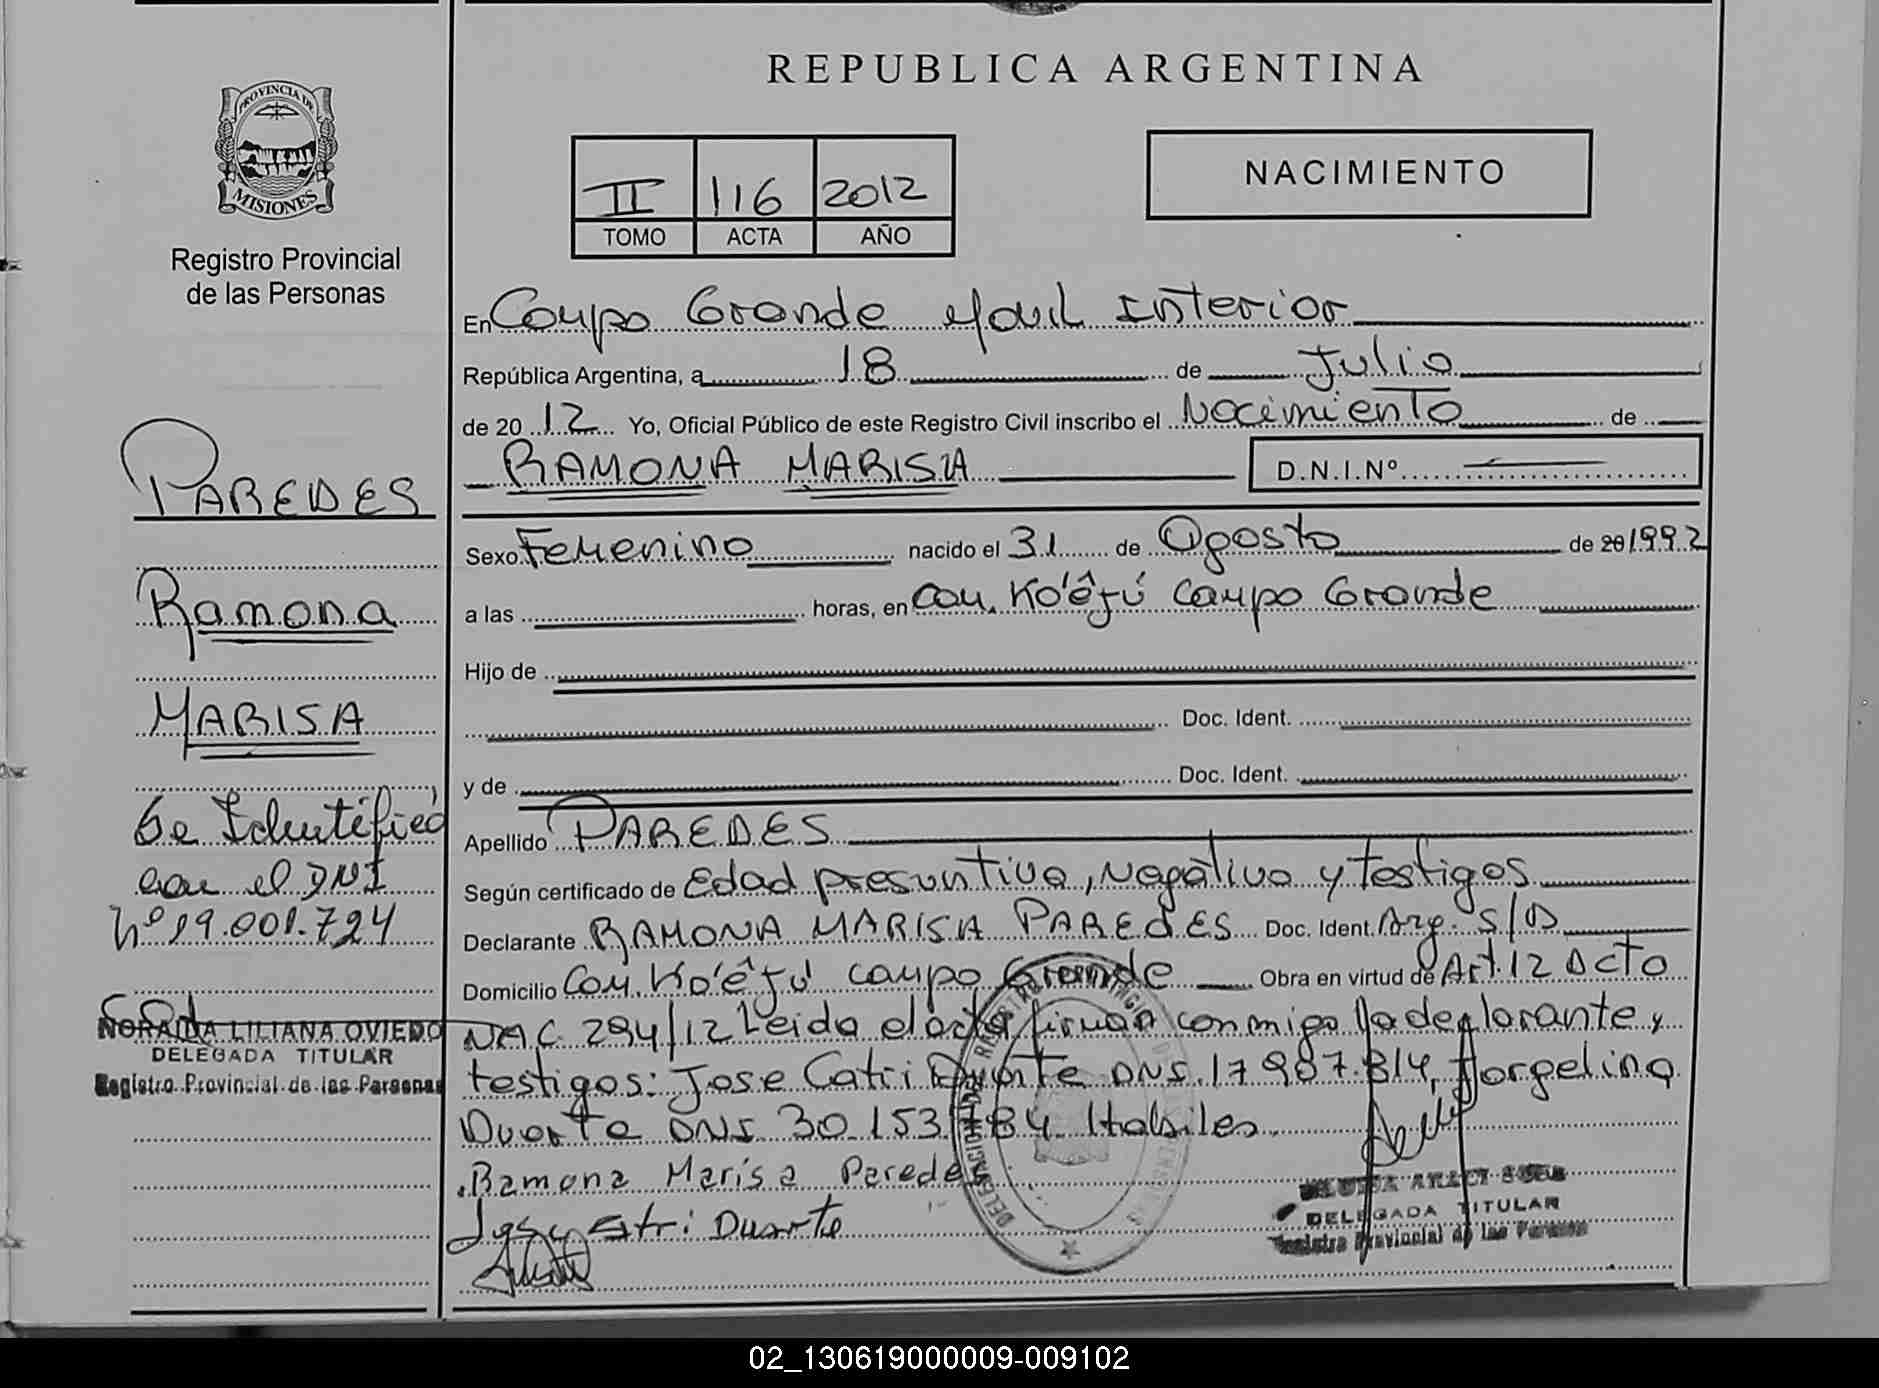 REPUBLICA ARGENTINA
PROVINCIA DE
MISIONES
Registro Provincial
de las Personas
II 116 2012
TOMO ACTA AÑO
NACIMIENTO
En Campo Grande Movil Interior
República Argentina, a 18 de Julio
de 2012 Yo, Oficial Público de este Registro Civil inscribo el Nacimiento de
RAMONA MARISA D.N.I.Nº
Sexo Femenino nacido el 31 de Agosto de 20 1992
a las horas, en Com. Ko'êjú Campo Grande
Hijo de
Doc. Ident.
y de Doc. Ident.
Apellido PAREDES
Según certificado de Edad presuntiva, Negativa y testigos
Declarante RAMONA MARISA PAREDES Doc. Ident. Arg. S/D
Domicilio Com. Ko'êjú Campo Grande Obra en virtud de Art. 12 Dcto
NAC 294/12 Leida el acta firman conmigo la declarante y
testigos: Jose Catri Duarte DNI 17 987.814, Jorgelina
Duarte DNI 30.153.784 Habiles.
Ramona Marisa Paredes
Jose Catri Duarte
DELEGADA TITULAR
Registro Provincial de las Personas
PAREDES
Ramona
MARISA
Se Identificó
con el DNI
Nº 19.001.724
NORAIDA LILIANA OVIEDO
DELEGADA TITULAR
Registro Provincial de las Personas
02_130619000009-009102